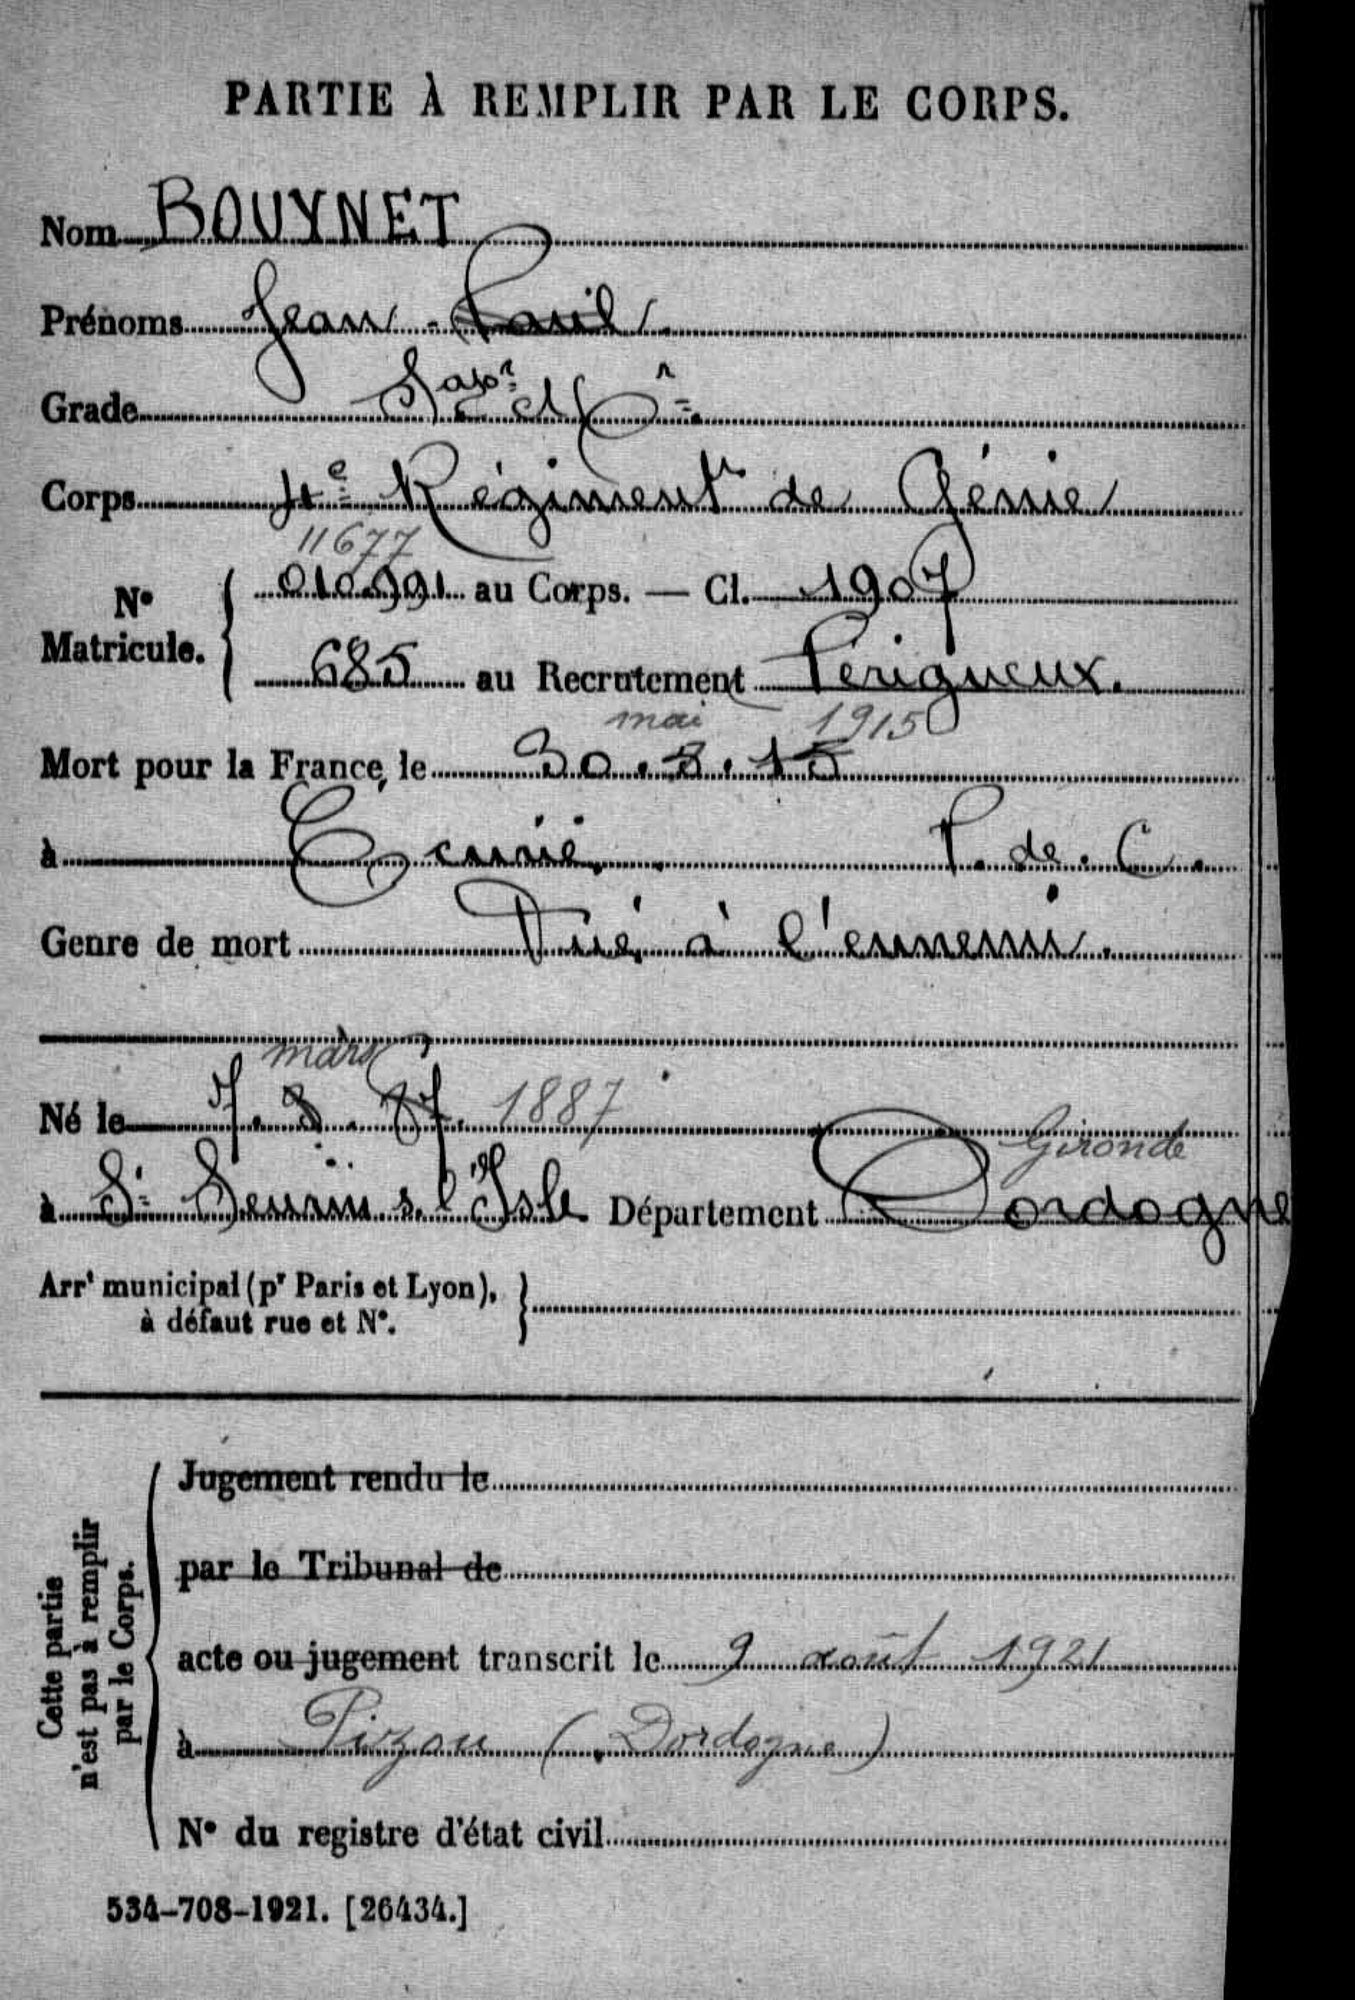 PARTIE À REMPLIR PAR LE CORPS.
Nom BOUYNET
Prénoms Jean - Paul
Grade Sapr Mr
Corps 4e Régiment de Génie
11677
N° Matricule. 010.991 au Corps. — Cl. 1907
685 au Recrutement Périgueux.
mai 1915
Mort pour la France le 30.5.15
à Ecurie. P. de. C.
Genre de mort Tué à l'ennemi.
mars
Né le 7. 3. 87. 1887
Gironde
à St Seurin s. l'Isle Département Dordogne
Arrt municipal (pr Paris et Lyon),
à défaut rue et N°.
Cette partie
n'est pas à remplir
par le Corps.
Jugement rendu le
par le Tribunal de
acte ou jugement transcrit le 9 août 1921
à Pizou (Dordogne)
N° du registre d'état civil
534-708-1921. [26434.]